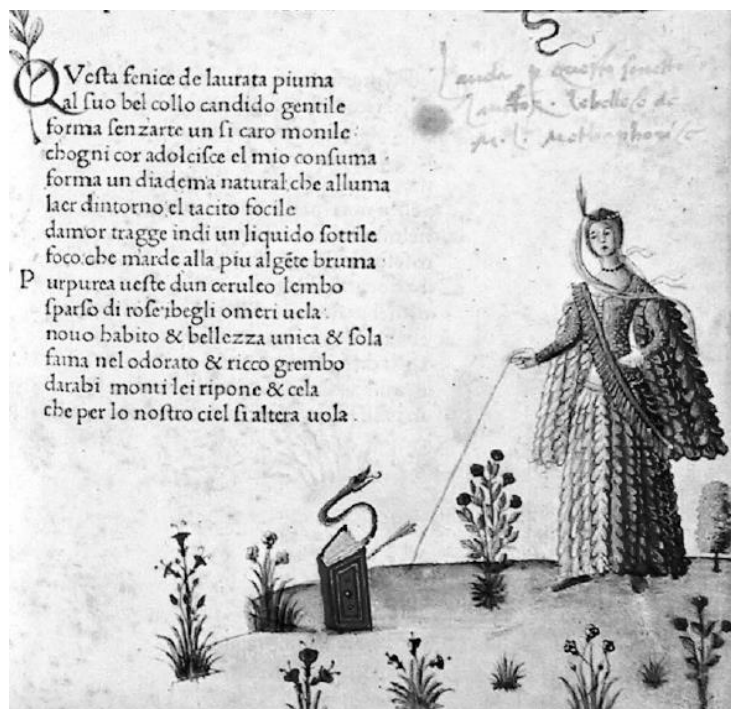 QVesta fenice de laurata piuma
al suo bel collo candido gentile
forma senzarte un si caro monile:
chogni cor adolcisce el mio consuma.
forma un diadema natural:che alluma
laer dintorno:el tacito focile
damor tragge indi un liquido sottile
foco:che marde alla piu algēte bruma
Purpurea ueste dun ceruleo lembo
sparso di rose:ibegli omeri uela:
nouo habito & bellezza unica & sola
fama nel odorato & ricco grembo
darabi monti lei ripone & cela
che per lo nostro ciel si altera uola.
Lauda questo sonetto